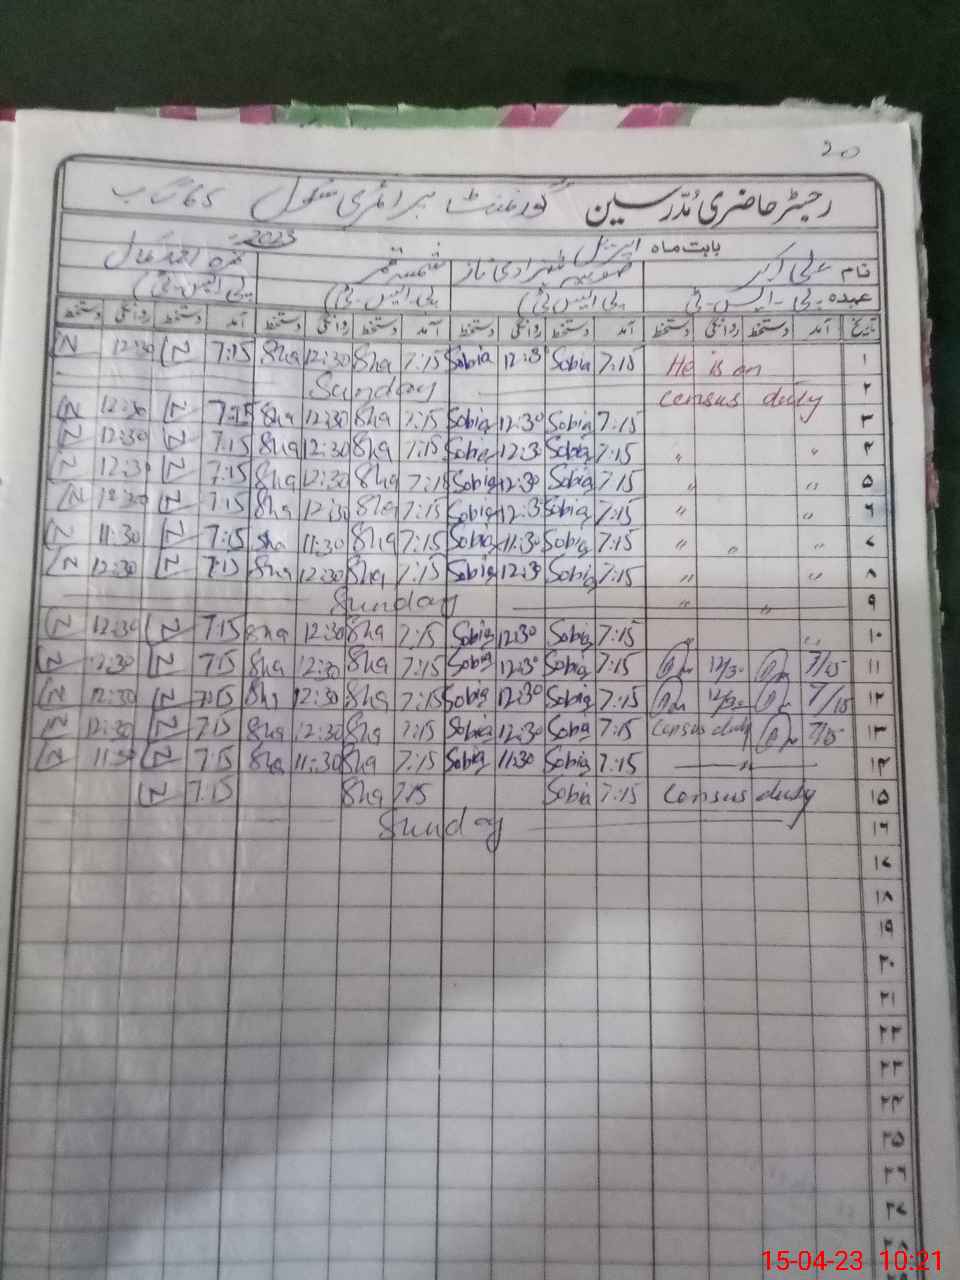 20
رجسٹر حاضری مدرسین گورنمنٹ پرائمری سکول 65 گ ب
بابت ماہ اپریل 2023
نام علی اکبر صوبیہ شہزادی ناز شمسہ قمر
عہدہ پی-ایس-ٹی پی ایس ٹی پی-ایس-ٹی پی ایس ٹی
تاریخ آمد دستخط روانگی دستخط آمد دستخط روانگی دستخط آمد دستخط روانگی دستخط آمد دستخط روانگی دستخط
N 12:30 N 7:15 Sha 12:30 Sha 7:15 Sobia 12:30 Sobia 7:15 He is on ۱
Sunday census duty ۲
N 12:30 N 7:15 Sha 12:30 Sha 7:15 Sobia 12:30 Sobia 7:15 ۳
N 12:30 N 7:15 Sha 12:30 Sha 7:15 Sobia 12:30 Sobia 7:15 " " ۴
N 12:30 N 7:15 Sha 12:30 Sha 7:15 Sobia 12:30 Sobia 7:15 " " ۵
N 12:30 N 7:15 Sha 12:30 Sha 7:15 Sobia 12:30 Sobia 7:15 " " ۶
N 11:30 N 7:15 Sha 11:30 Sha 7:15 Sobia 11:30 Sobia 7:15 " " " ۷
N 12:30 N 7:15 Sha 12:30 Sha 7:15 Sobia 12:30 Sobia 7:15 " " ۸
Sunday " " ۹
N 12:30 N 7:15 Sha 12:30 Sha 7:15 Sobia 12:30 Sobia 7:15 " " ۱۰
N 12:30 N 7:15 Sha 12:30 Sha 7:15 Sobia 12:30 Sobia 7:15 12/30 7/15 ۱۱
N 12:30 N 7:15 Sha 12:30 Sha 7:15 Sobia 12:30 Sobia 7:15 12/30 7/15 ۱۲
N 12:30 N 7:15 Sha 12:30 Sha 7:15 Sobia 12:30 Sobia 7:15 census duty 7/15 ۱۳
N 11:30 N 7:15 Sha 11:30 Sha 7:15 Sobia 11:30 Sobia 7:15 " ۱۴
N 7:15 Sha 7:15 Sobia 7:15 Census duty ۱۵
Sunday ۱۶
۱۷
۱۸
۱۹
۲۰
۲۱
۲۲
۲۳
۲۴
۲۵
۲۶
۲۷
۲۸
15-04-23 10:21